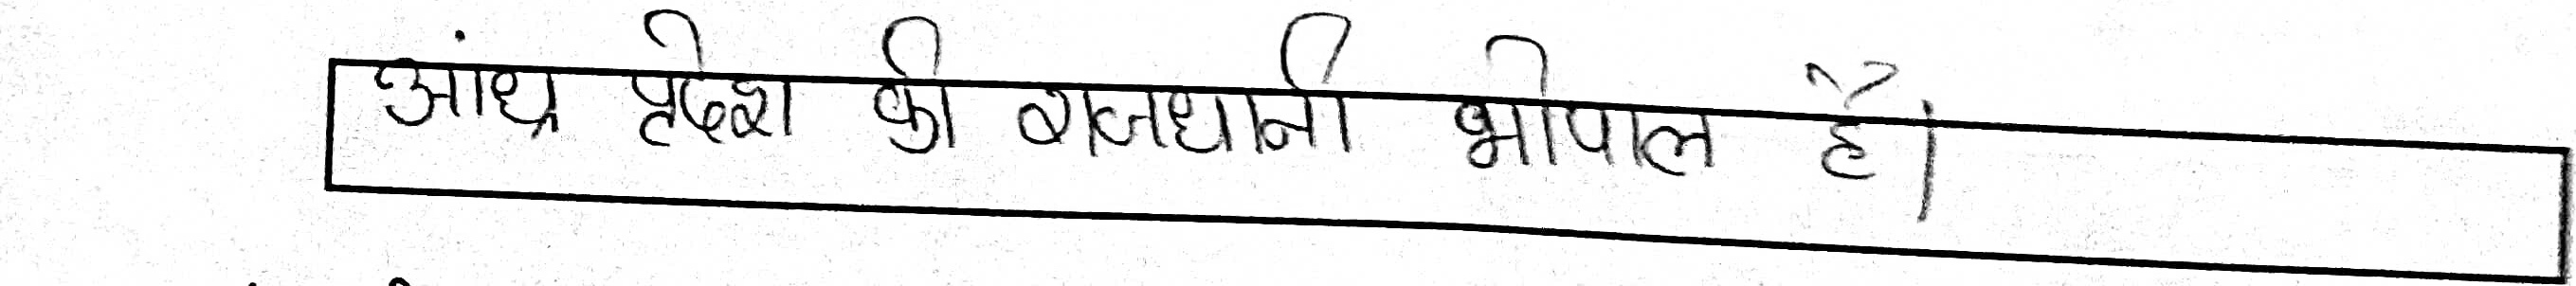 आंध्र प्रदेश की राजधानी भोपाल है।